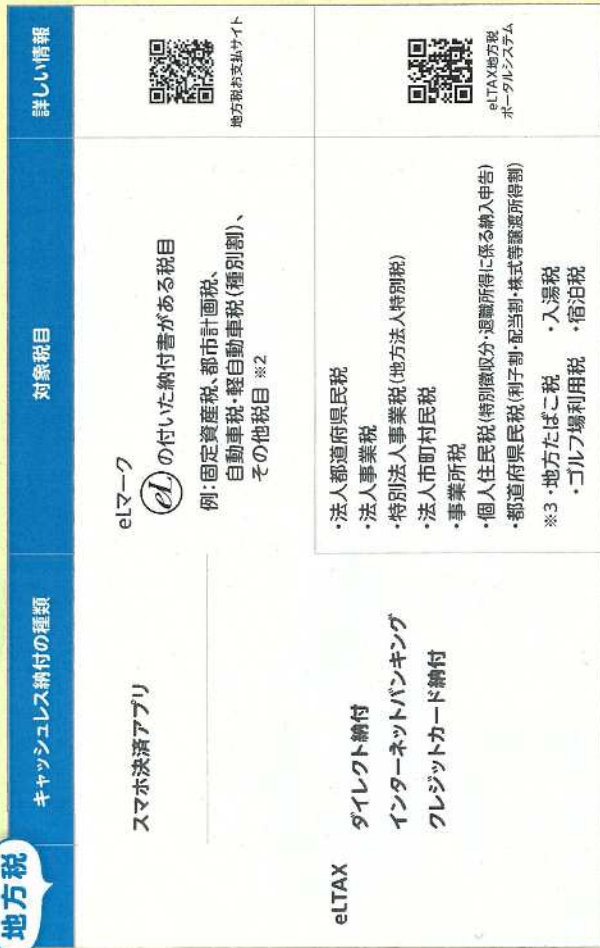 地方税
キャッシュレス納付の種類
対象税目
詳しい情報
スマホ決済アプリ
eLマーク
eL の付いた納付書がある税目
例:固定資産税、都市計画税、
自動車税・軽自動車税(種別割)、
その他税目 ※2
地方税お支払サイト
eLTAX
ダイレクト納付
インターネットバンキング
クレジットカード納付
・法人都道府県民税
・法人事業税
・特別法人事業税(地方法人特別税)
・法人市町村民税
・事業所税
・個人住民税(特別徴収分・退職所得に係る納入申告)
・都道府県民税(利子割・配当割・株式等譲渡所得割)
※3 ・地方たばこ税 ・入湯税
・ゴルフ場利用税 ・宿泊税
eLTAX地方税
ポータルシステム